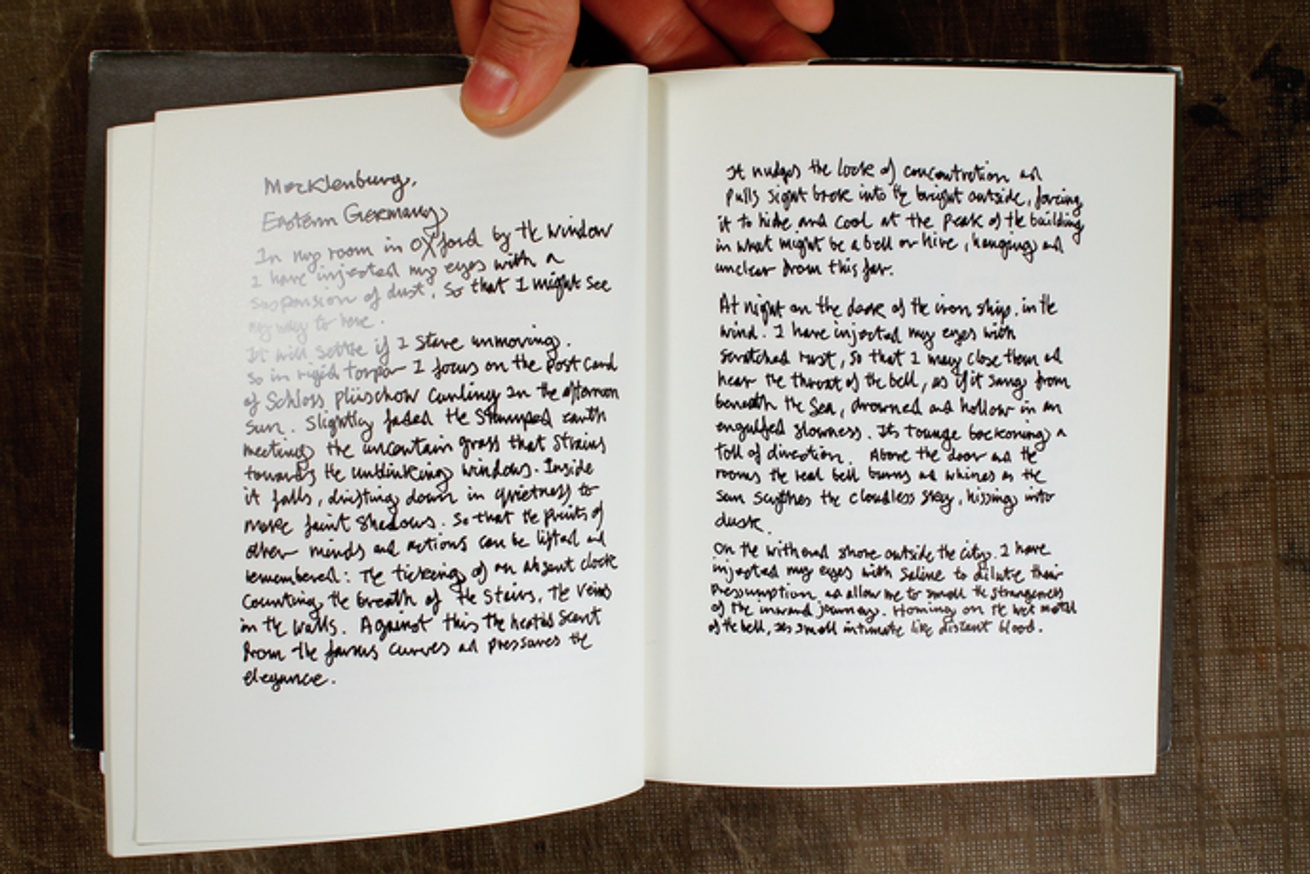 Mecklenburg,
Eastern Germany
In my room in Oxford by the window
I have injected my eyes with a
suspension of dust, so that I might see
my way to here.
It will settle if I stare unmoving.
So in rigid torpor I focus on the post card
of Schloss plüschow curling in the afternoon
sun. Slightly faded the stamped earth
meeting the uncertain grass that strains
towards the unblinking windows. Inside
it falls, drifting down in quietness to
make faint shadows. So that the prints of
other minds and actions can be lifted and
remembered: The ticking of an absent clock
counting the breath of the stairs, the veins
in the walls. Against this the heated scent
from the curves and pressures the
elegance.
It nudges the look of concentration and
pulls sight back into the bright outside, forcing
it to hide and cool at the peak of the building
in what might be a bell or hive, hanging and
unclear from this far.
At night on the dark of the iron ship, in the
wind. I have injected my eyes with
scratched rust, so that I may close them and
hear the throat of the bell, as if it sang from
beneath the sea, drowned and hollow in an
engulfed slowness. Its tounge beckoning a
toll of direction. Above the door and the
rooms the real bell burns and whines as the
sun scythes the cloudless sky, hissing into
dusk.
On the withered shore outside the city. I have
injected my eyes with saline to dilute their
presumption and allow me to smell the strangeness
of the inward journey. Homing on the wet metal
of the bell, its smell intimate like distant blood.